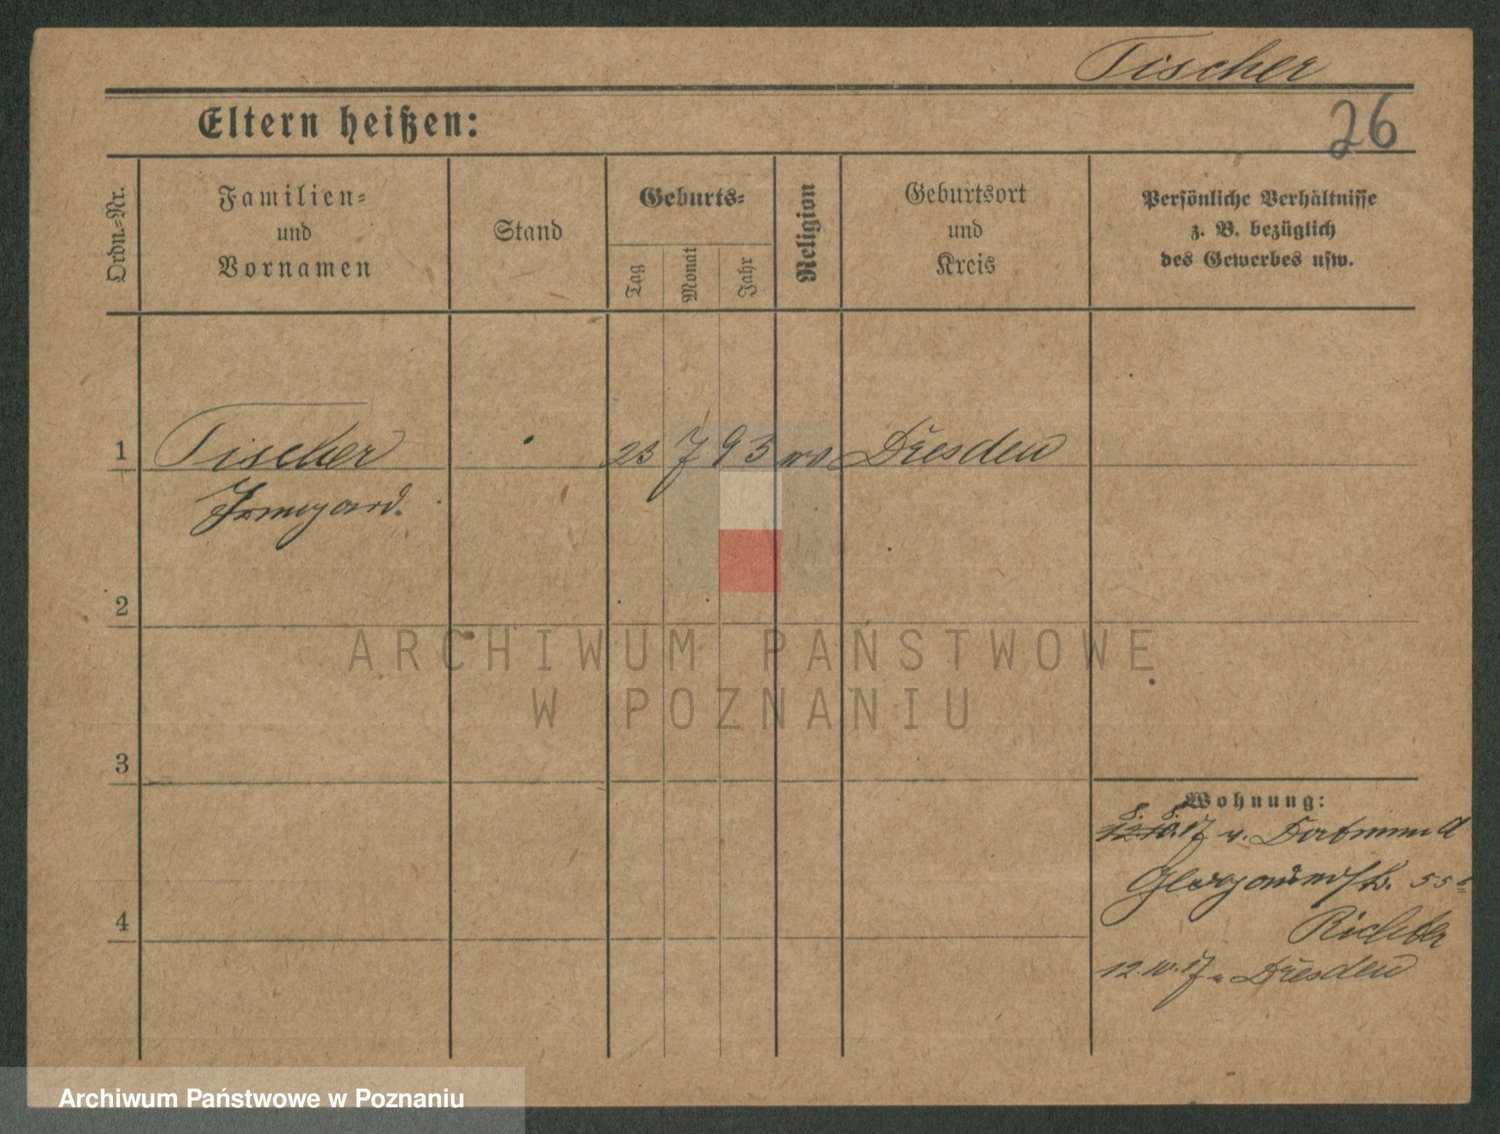 Fischer
Eltern heißen:
26
Ordn.-Nr.
Familien-
und
Vornamen
Stand
Geburts-
Tag
Monat
Jahr
Religion
Geburtsort
und
Kreis
Persönliche Verhältnisse
z. B. bezüglich
des Gewerbes usw.
1 Fischer 23 7 93 Dresden
Irmgard.
2
3
4
Wohnung:
8. 8. 17 v. Dortmund
55
Richter
12.10.17 n Dresden
ARCHIWUM PAŃSTWOWE
W POZNANIU
Archiwum Państwowe w Poznaniu